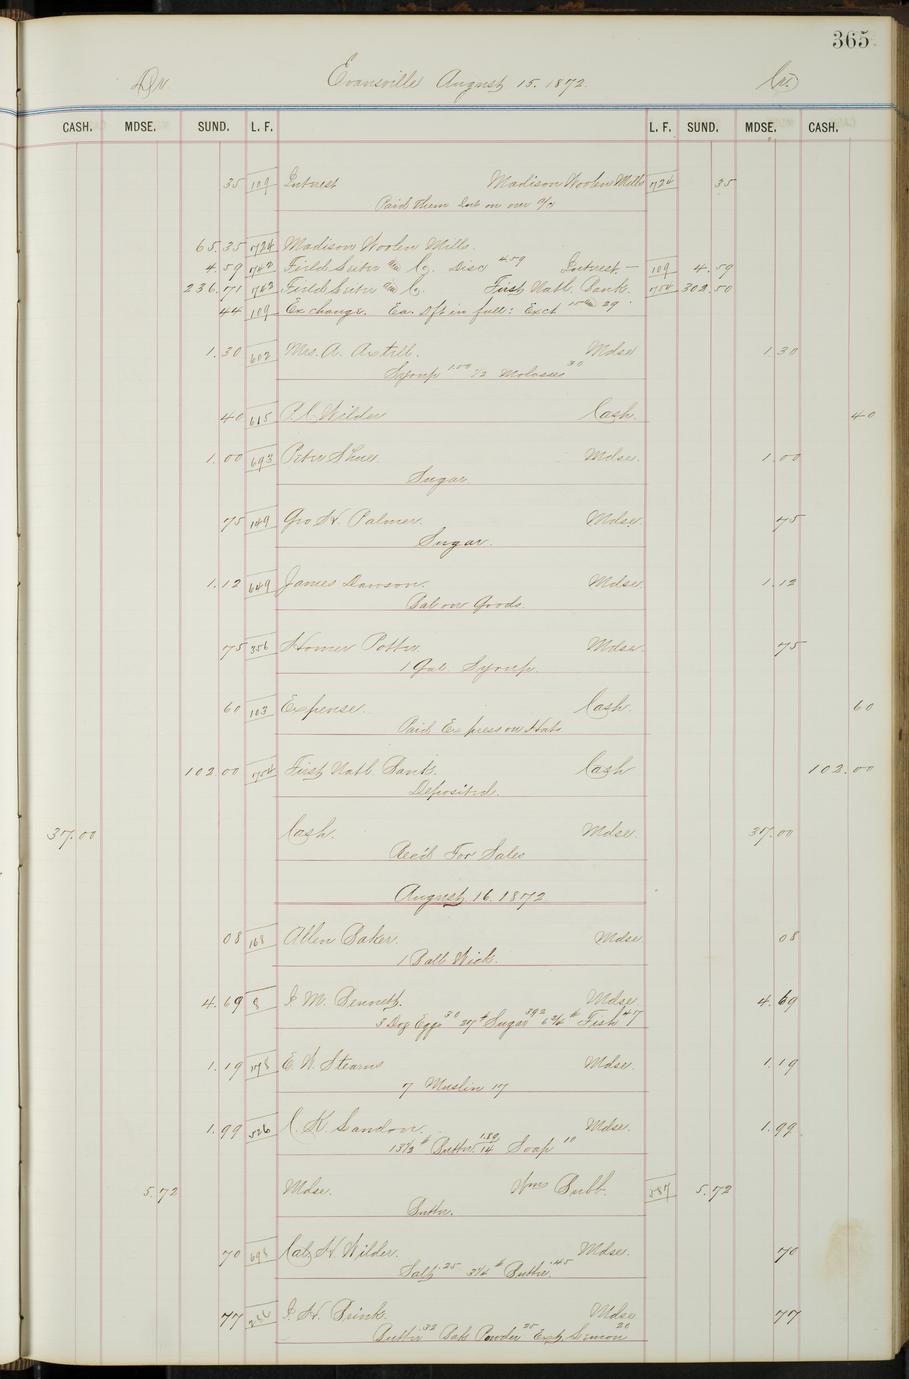 365
Dr. Evansville August 15. 1872. Cr.
CASH. MDSE. SUND. L. F. L. F. SUND. MDSE. CASH.
35 109 Interest Madison Woolen Mills 724 35
Paid them Int on our a/c
65.35 724 Madison Woolen Mills.
4.59 742 Field Disc 4.59 Interest — 109 4.59
236.71 742 Field First Natl. Bank. 754 302.50
44 109 Exchange. Ea. Dft in full: Exch 29
1.30 602 Mrs. A. Axtell. Mdse 1.30
Syrup 1.00 1/2 Molasses 30
40 615 P. C. Wilder Cash. 40
1.00 693 Peter Shuel Mdse. 1.00
Sugar.
75 149 Geo H. Palmer. Mdse. 75
Sugar.
1.12 649 James Dawson. Mdse. 1.12
Bal on Goods.
75 356 Homer Potter. Mdse. 75
1 Gal Syrup.
60 103 Expense. Cash. 60
Paid Express on Hats
102.00 754 First Natl. Bank. Cash 102.00
Deposited.
37.00 Cash. Mdse. 37.00
Rec'd For Sales
August 16. 1872
08 168 Allen Baker. Mdse 08
1 Ball Wick.
4.69 8 I. M. Bennett. Mdse 4.69
3 Doz Eggs 30 27# Sugar 392 6 3/4# Fish 47
1.19 178 E. W. Stearns Mdse. 1.19
7 Muslin 17
1.99 526 C. K. Landon. Mdse. 1.99
13 1/2# Butter 1.89 14 Soap 10
5.72 Mdse. Wm Bubb. 587 5.72
Butter.
70 698 Cal. H. Wilder. Mdse. 70
Salt .25 3 1/4# Butter .45
77 I. H. Brink. Mdse 77
Butter 32 Bak Powder 25 Ext. Lemon 20